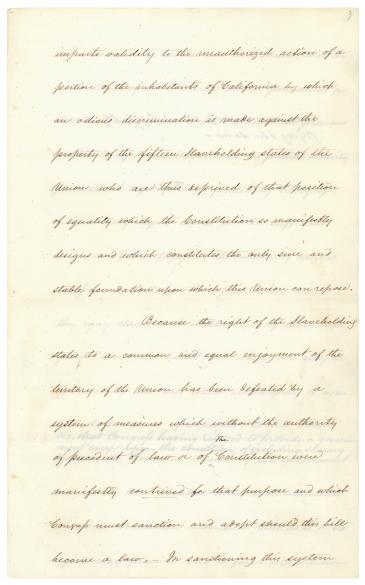 3
imparts validity to the unauthorized action of a
portion of the inhabitants of California by which
an odious discrimination is made against the
property of the fifteen Slaveholding states of the
Union who are thus deprived of that position
of equality which the Constitution so manifestly
designs and which constitutes the only sure and
stable foundation upon which this Union can repose.
Because the right of the Slaveholding
states to a common and equal enjoyment of the
territory of the Union has been defeated by a
system of measures which without the authority
of precedent of law or of the Constitution were
manifestly contrived for that purpose and which
Congress must sanction and adopt should this bill
become a law. – In sanctioning this system